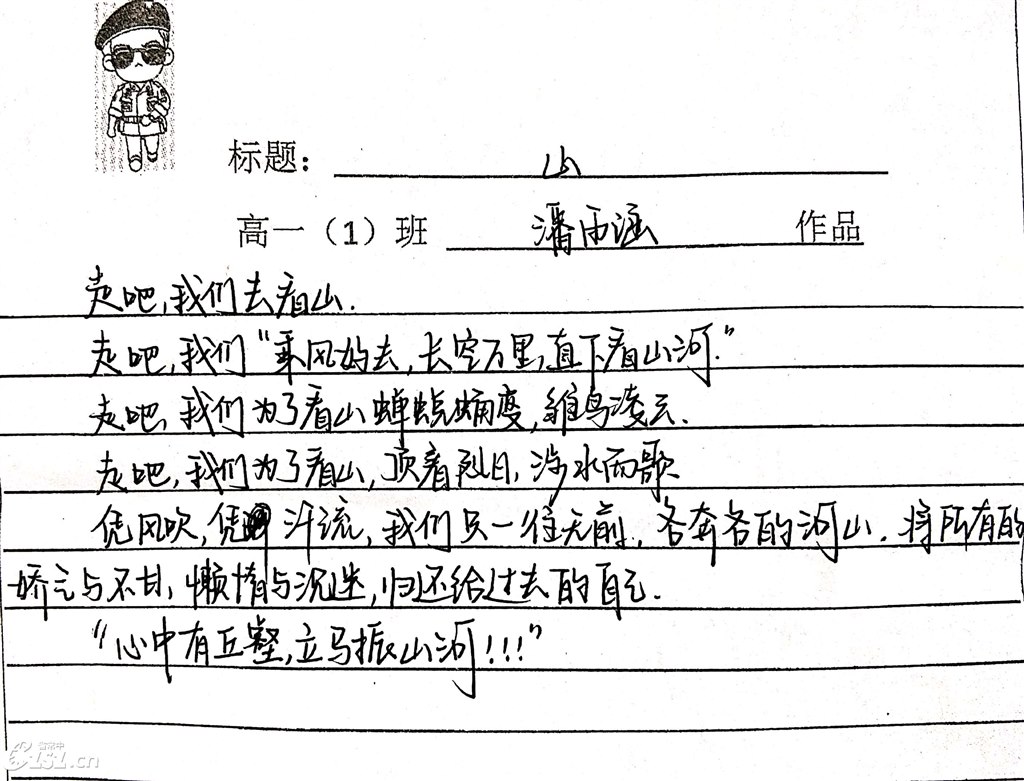 标题： 山
高一（1）班 潘雨涵 作品
走吧，我们去看山.
走吧，我们"乘风好去，长空万里，直下看山河."
走吧，我们为了看山蝉蜕蛹变，雏鸟凌云.
走吧，我们为了看山，顶着烈日，涉水而歌
凭风吹，凭汗流，我们只一往无前，各奔各的河山.将所有的
娇气与不甘，懒惰与沉迷，归还给过去的自己.
"心中有丘壑，立马振山河！！！"
151.cn